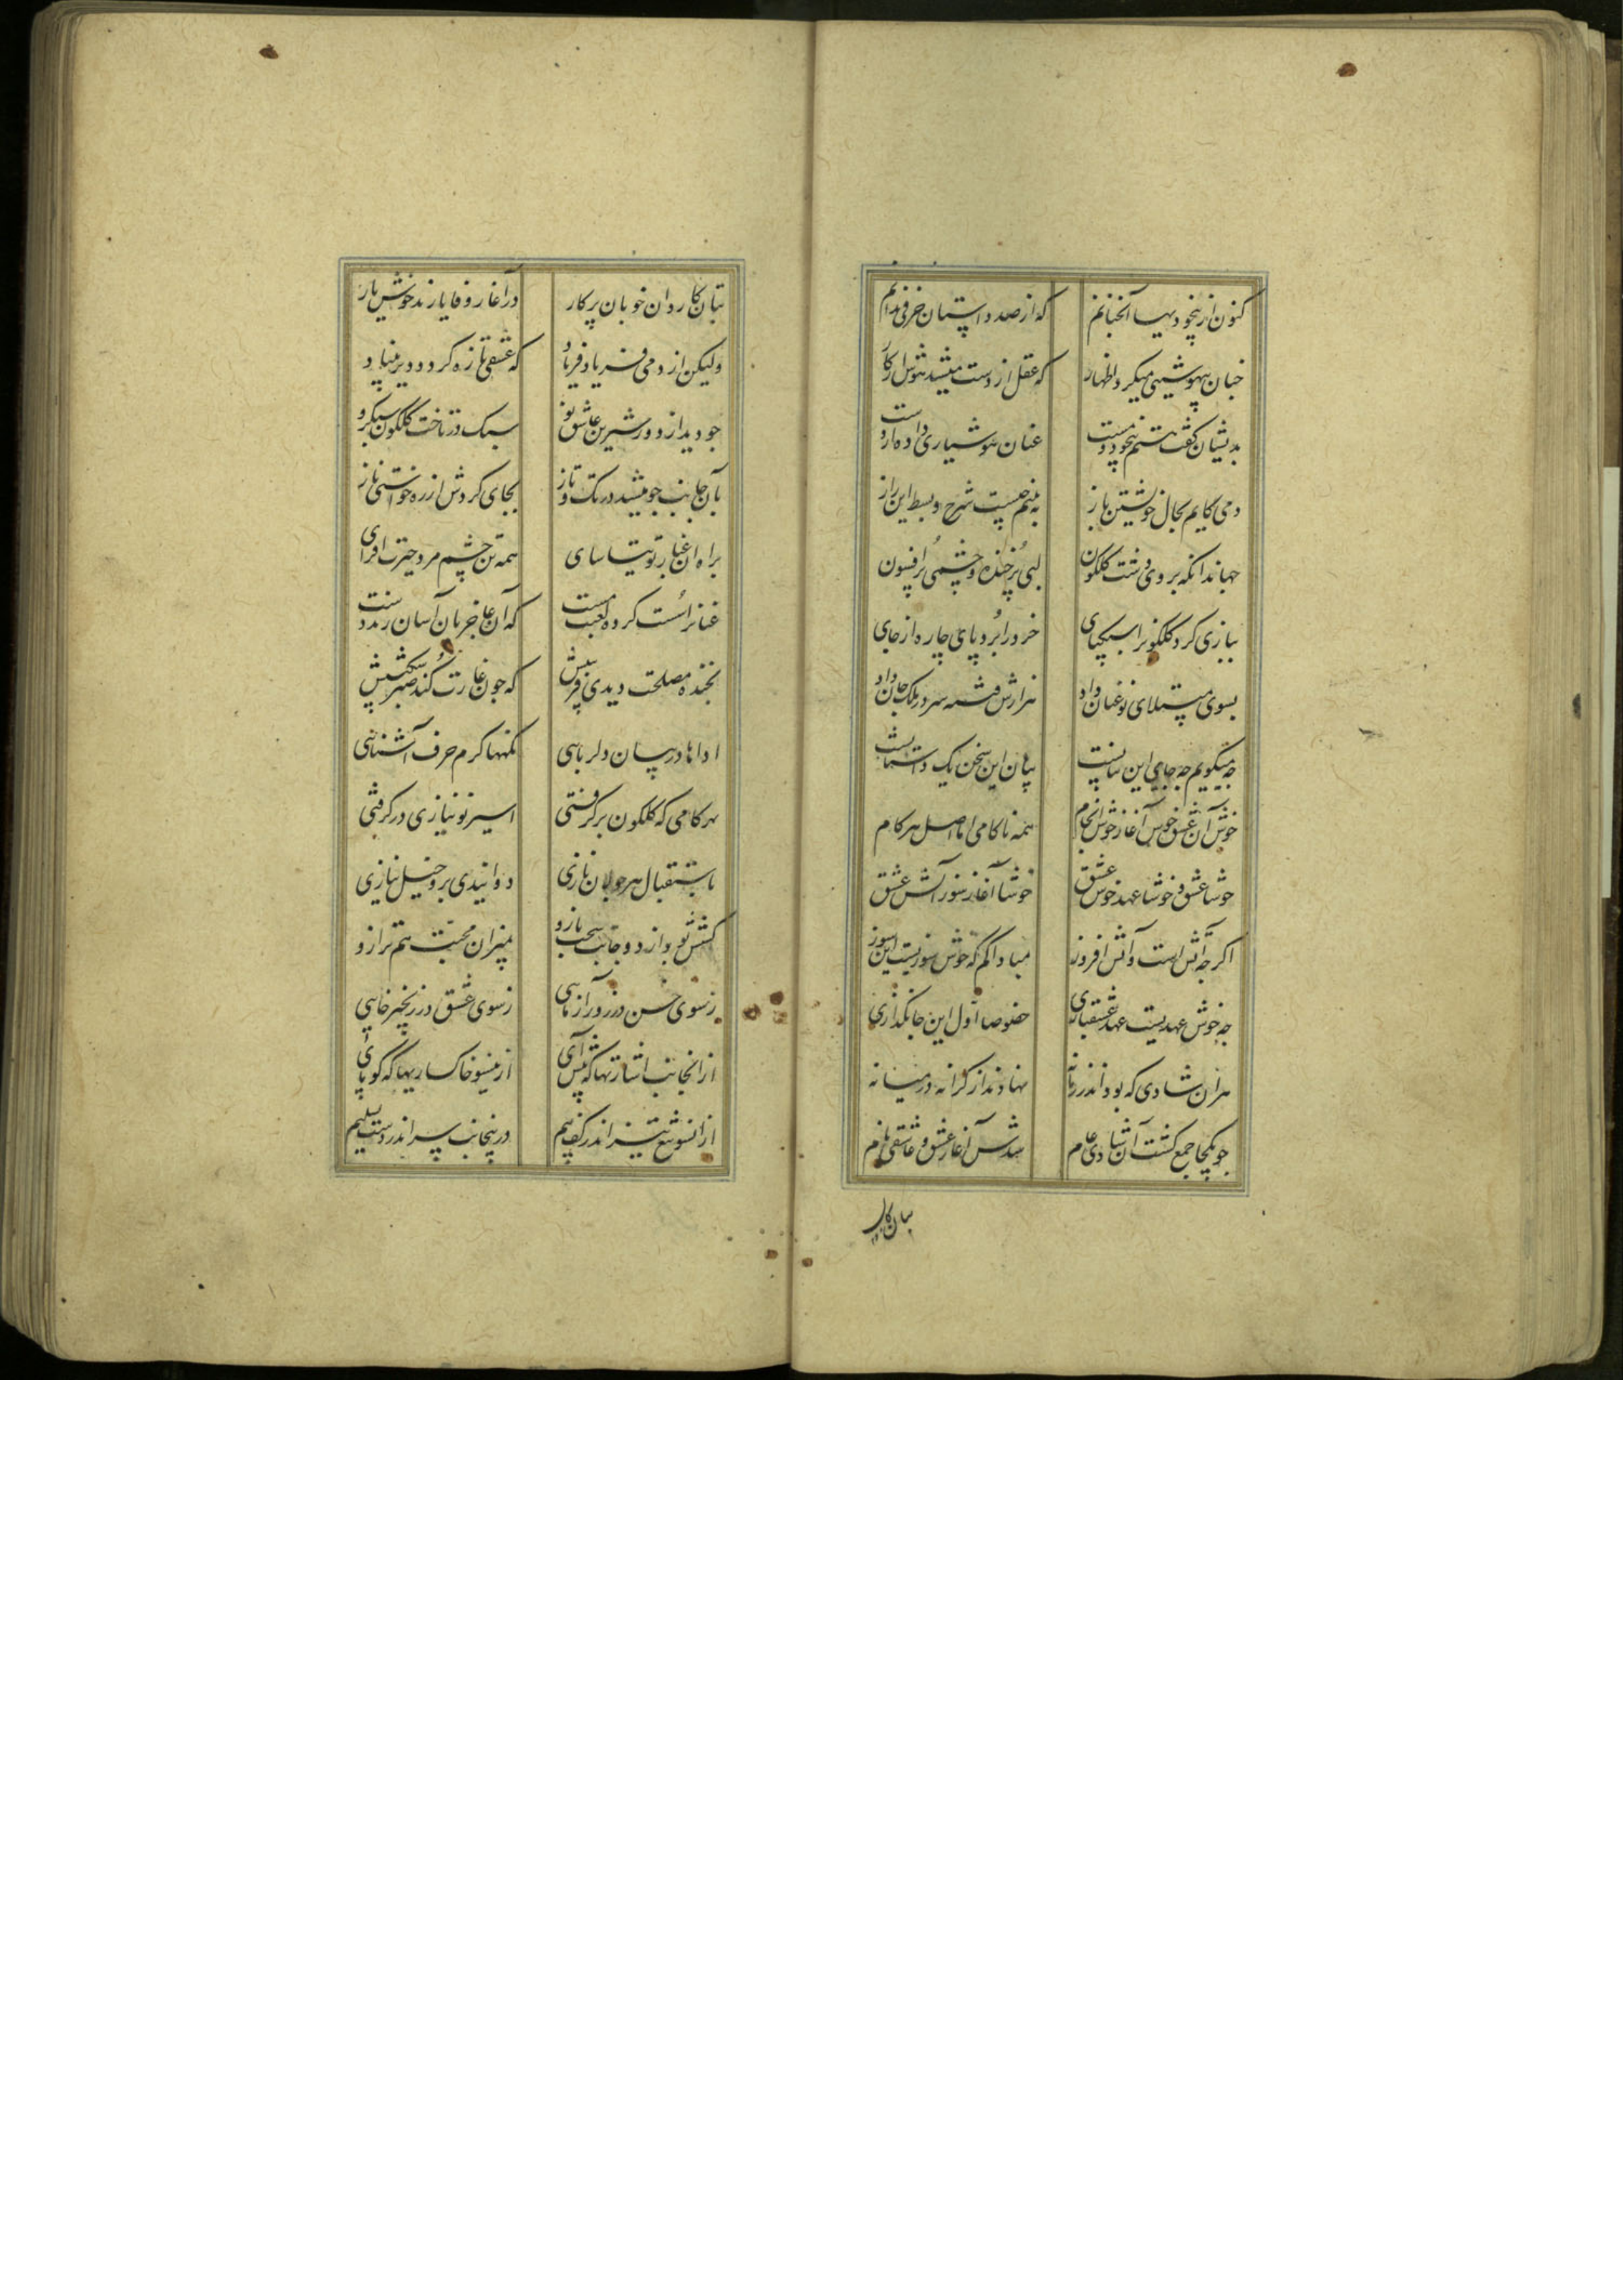 کنون از بیخودیها آنچنانم که از صد داستان حرفی ندانم
چنان بیهوشیی میکرد اظهار که عقل از دست میشد هوش از کار
بدیشان گفت هستم بیخود و مست عنان هوشیاری داده از دست
دمی کایم بحال خویشتن باز ببینم چیست شرح و بسط این راز
جهاند آنگه بروی دشت گلگون لبی پر خنده و چشمی پر افسون
ببازی کرد گلگونرا سبکپای خرد را برد پای چاره از جای
بسوی مبتلای نو عنان داد هزارش فتنه سر در ملک جان داد
چه میگویم چه جای این بیانست بیان این سخن یک داستانست
خوش آن عشق خوش آغاز خوش انجام همه ناکامی اما اصل هر کام
خوشا عشق و خوشا عهد خوش عشق خوشا آغاز سوز آتش عشق
اگر چه آتش است و آتش افروز مبادا کم که خوش سوزیست این سوز
چه خوش عهدیست عهد عشقبازی خصوصا اول این جانگدازی
هر آن شادی که بود اندر زمانه نهادند از کرانه در میانه
چو یکجا جمع گشت آن شادی عام شدش آغاز عشق و عاشقی نام
بتان کار
بتان کاردان خوبان پرکار در آغاز وفا یارند خوش یار
ولیکن از دمی فریاد فریاد که عشقی تازه گردد دیر بنیاد
چو دید از دور شیرین عاشق نو سبک در تاخت گلگون سبکرو
بآن جانب چو میشد در تک و تاز بجای گردش از ره خواستی ناز
براه آن غبار توتیاسای همه تن چشم مرد حیرت افزای
عنانرا سست کرده لعبت مست که آن عاجز بآن آسان زند دست
بخنده مصلحت دیدی فریبش که چون غارت کند صبر و شکیبش
اداها در بیان دلربایی نگهها گرم حرف آشنایی
بهر گامی که گلگون برگرفتی اسیر نو نیازی درگرفتی
باستقبال هر جولان نازی دوانیدی برو خیل نیازی
کشش بود از دو جانب سخت بازو بمیزان محبت هم ترازو
ز سوی حسن در زور آزمایی ز سوی عشق در زنجیر خایی
از آنجانب اشارتها که پیش آی ازینسو خاکساریها که کو پای
از آنسو تیغ تیز اندر کف بیم درینجانب سر اندر دست تسلیم